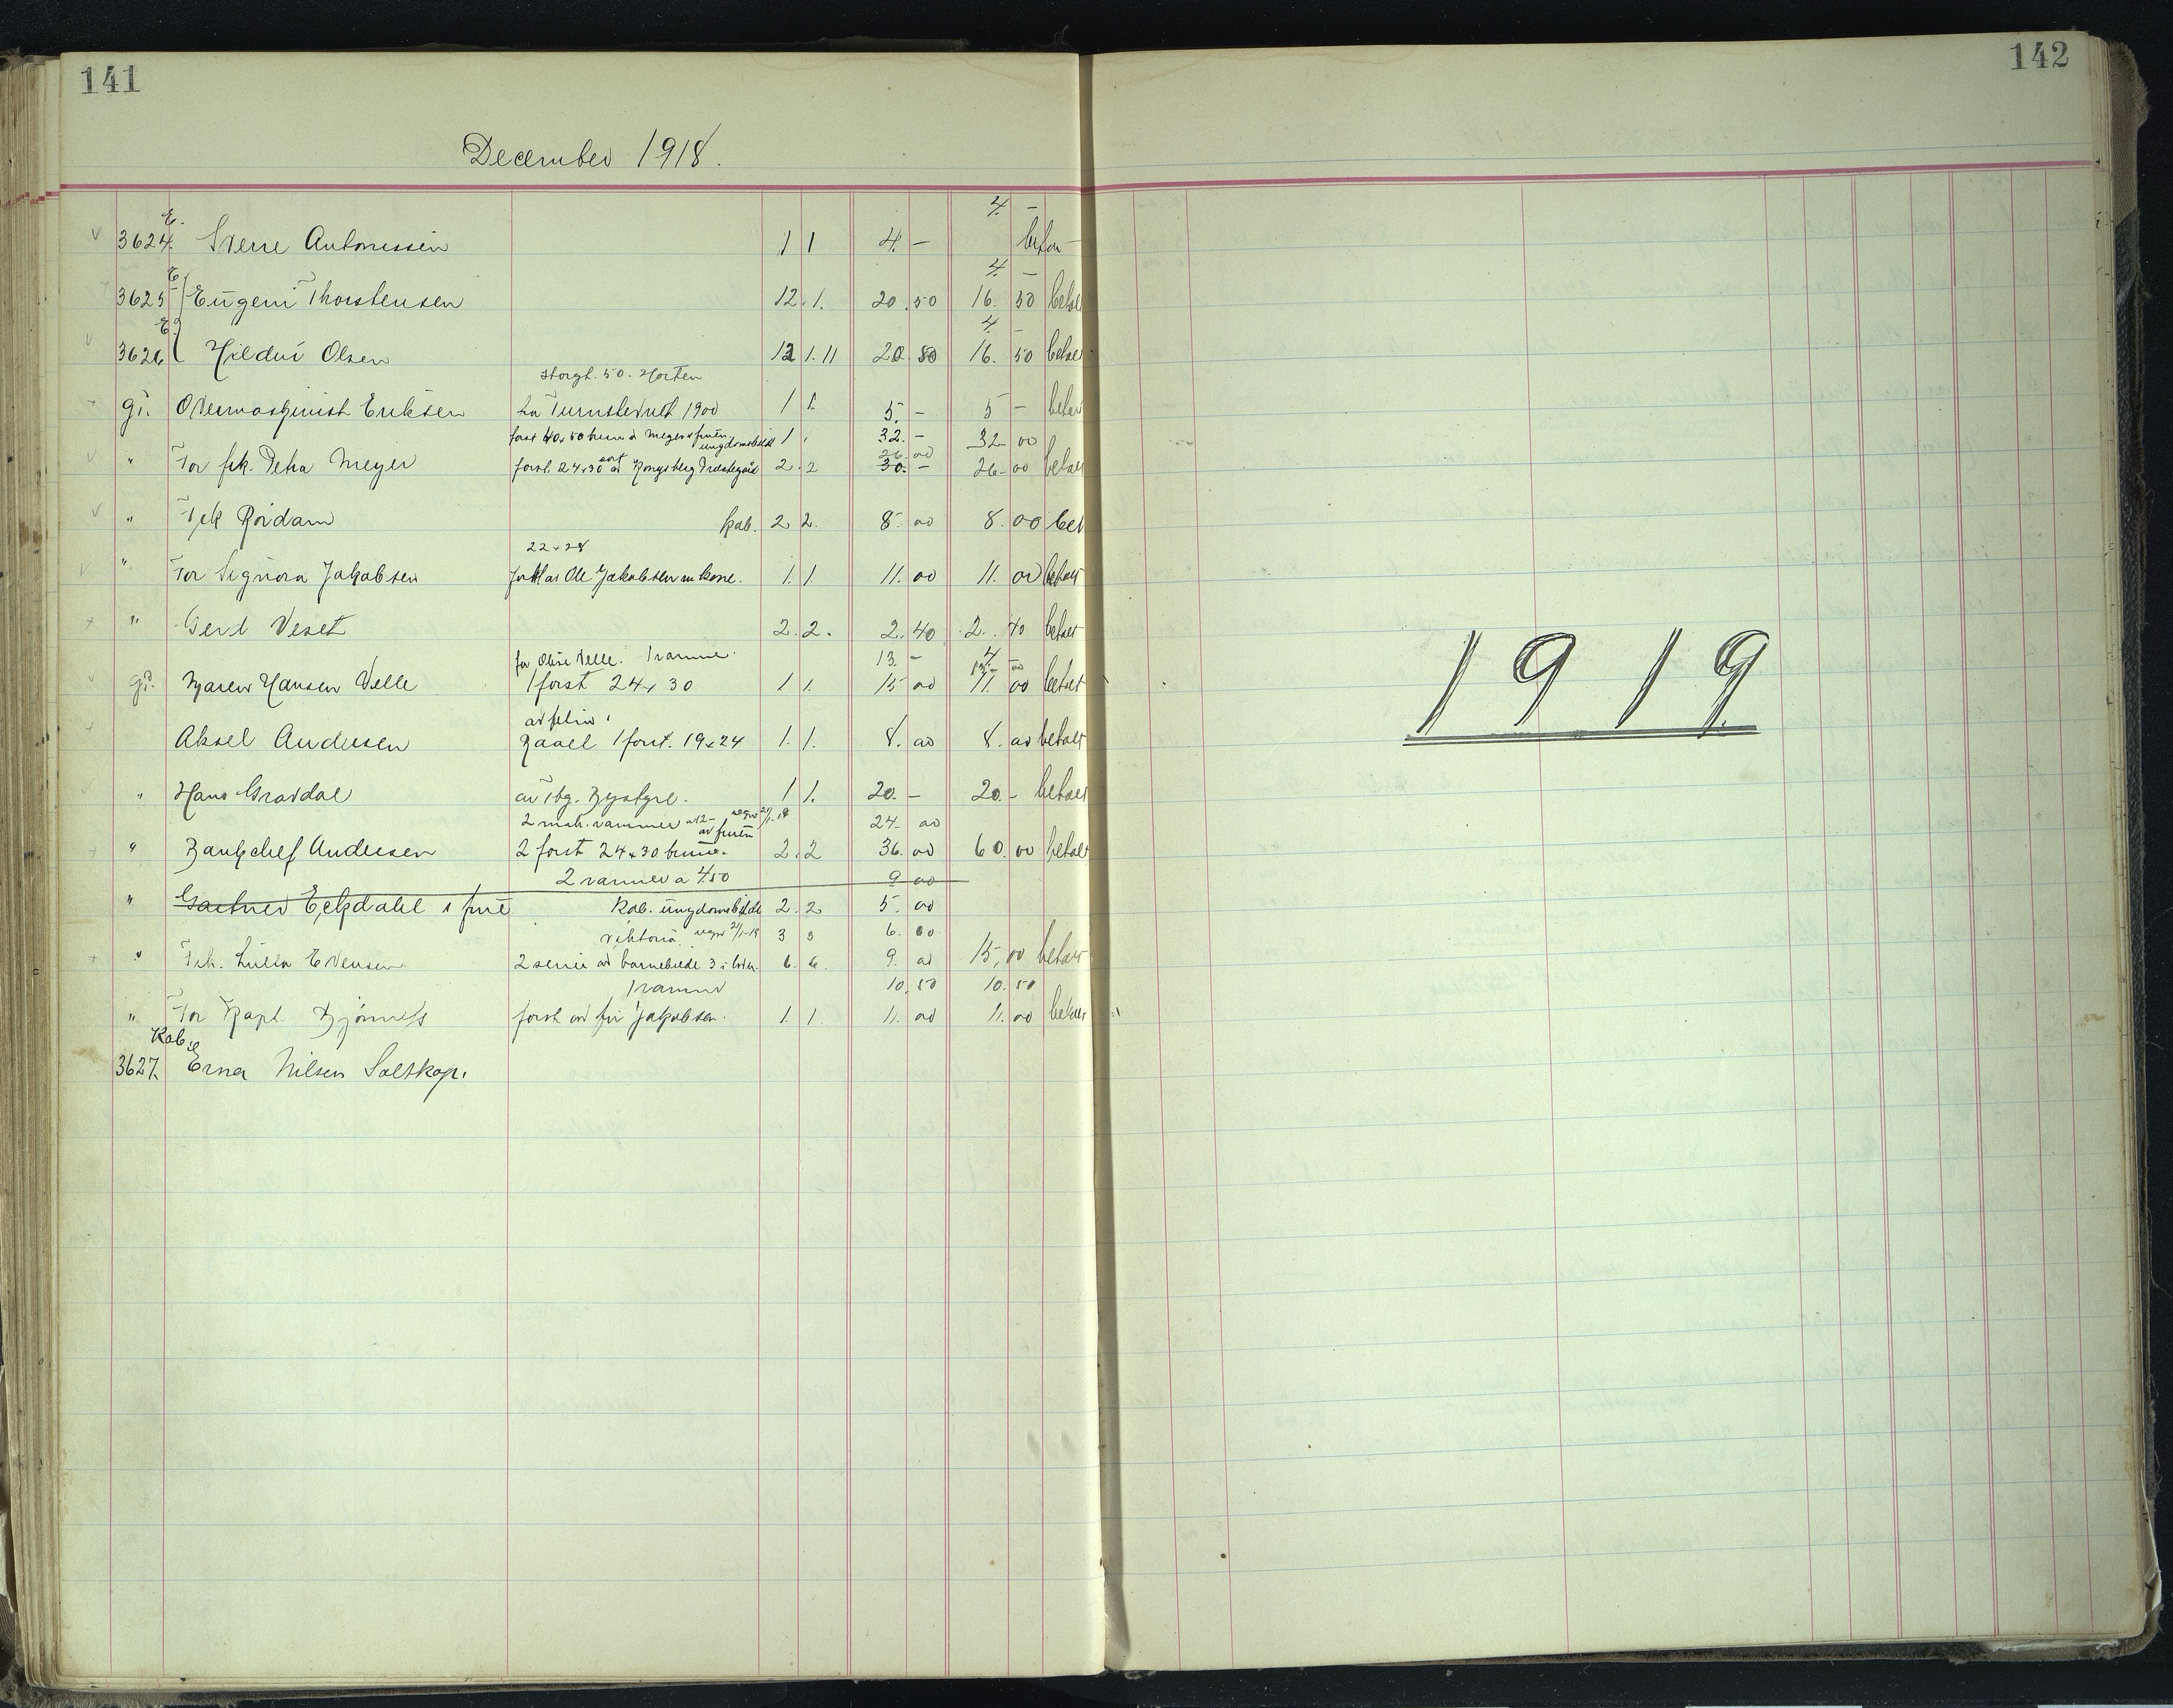 141
142
December 1918.
E.
4. -
3624. Sverre Antonissen 1 1 4. -
E
4. -
3625 Eugeni Thorstensen 12. 1. 20.50 16.50 betalt
E
4. -
3626 Hildur Olsen 12 1. 11 20 50 16.50 betalt
Storgt. 50. Horten
gt. Overmaskinist Eriksen fra Turnstevnet 1900 1 1. 5. - 5 - betalt
forst 40x50 brun a Meyer & fruen ungdomsbillede 1. 32. - 32.00
26.00
" For frk. Petra Meyer forst. 24x30 sort av Kongsberg Prestegård 2. 2 30. - 26.00 betalt
" Frk Roidam kab. 2 2. 8.00 8.00 bet
22x28
" For Signora Jakobsen forst av Ole Jakobsen m kone. 1. 1. 11.00 11.00 betalt
" Gerd Veset 2. 2. 2.40 2.40 betalt
for Oline Velle. 1 ramme. 13. - 4. -
13.00
gt. Maren Hansen Velle 1 forst 24x30 1 1. 15 00 11.00 betalt
Aksel Andersen Kaael 1 forst. 19x24 1. 1. 8.00 8.00 betalt
" Hans Gravdal av Kystgt. 1 1. 20. - 20. - betalt
2 mah. rammer a 12- 24.00
av fruen
" Bankchef Andersen 2 forst 24x30 brune. 2. 2 36.00 60.00 betalt
2 rammer a 4/50 9 00
" Gartner Eckdahl & frue Kab. ungdomsbillede 2. 2 5.00
Viktoria. 21/1-19 3 3 6.00
" Frk. Lulla Evensen 2 serier av barnebilede 3 i hver. 6. 6. 9.00 15,00 betalt
1 ramme 10,50 10.50
" For Kapt. Bjørnes forst av fru Jakobsen. 1. 1. 11.00 11.00 betalt
Kab.
3627. Erna Nilsen Saltkop.
1919.